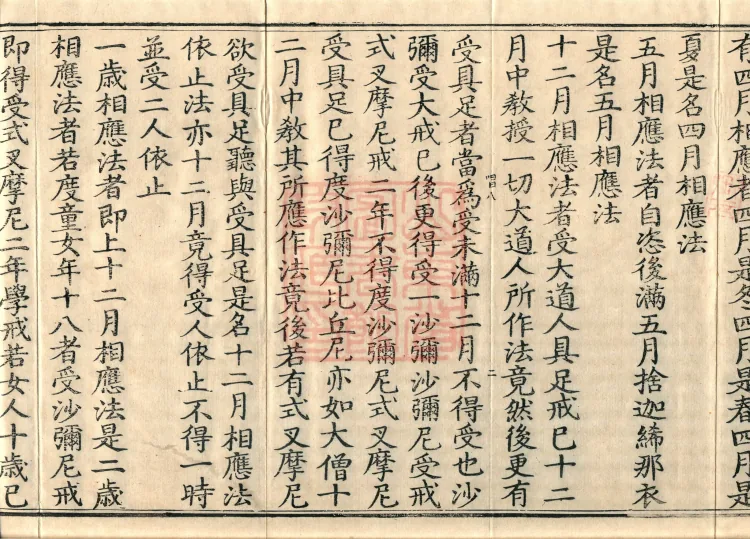 有四月相應者四月是名四月是春四月是
夏是名四月相應法
五月相應法者自恣後滿五月捨迦絺那衣
是名五月相應法
十二月相應法者受大道人具足戒已十二
月中教授一切大道人所作法竟然後更有
二
受具足者當爲受未滿十二月不得受也沙
彌受大戒已後更得受一沙彌沙彌尼受戒
式叉摩尼戒二年不得度沙彌尼式叉摩尼
受具足已得度沙彌尼比丘尼亦如大僧十
二月中教其所應作法竟後若有式叉摩尼
欲受具足聽與受具足是名十二月相應法
依止法亦十二月竟得受人依止不得一時
並受二人依止
一歲相應法者即上十二月相應法是二歲
相應法者若度童女年十八者受沙彌尼戒
即得受式叉摩尼二年學戒若女人十歲已